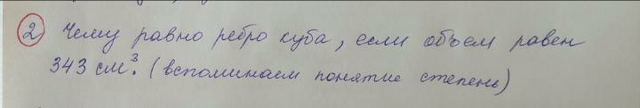 2 Чему равно ребро куба, если объем равен
343 см³. (вспоминаем понятие степень)